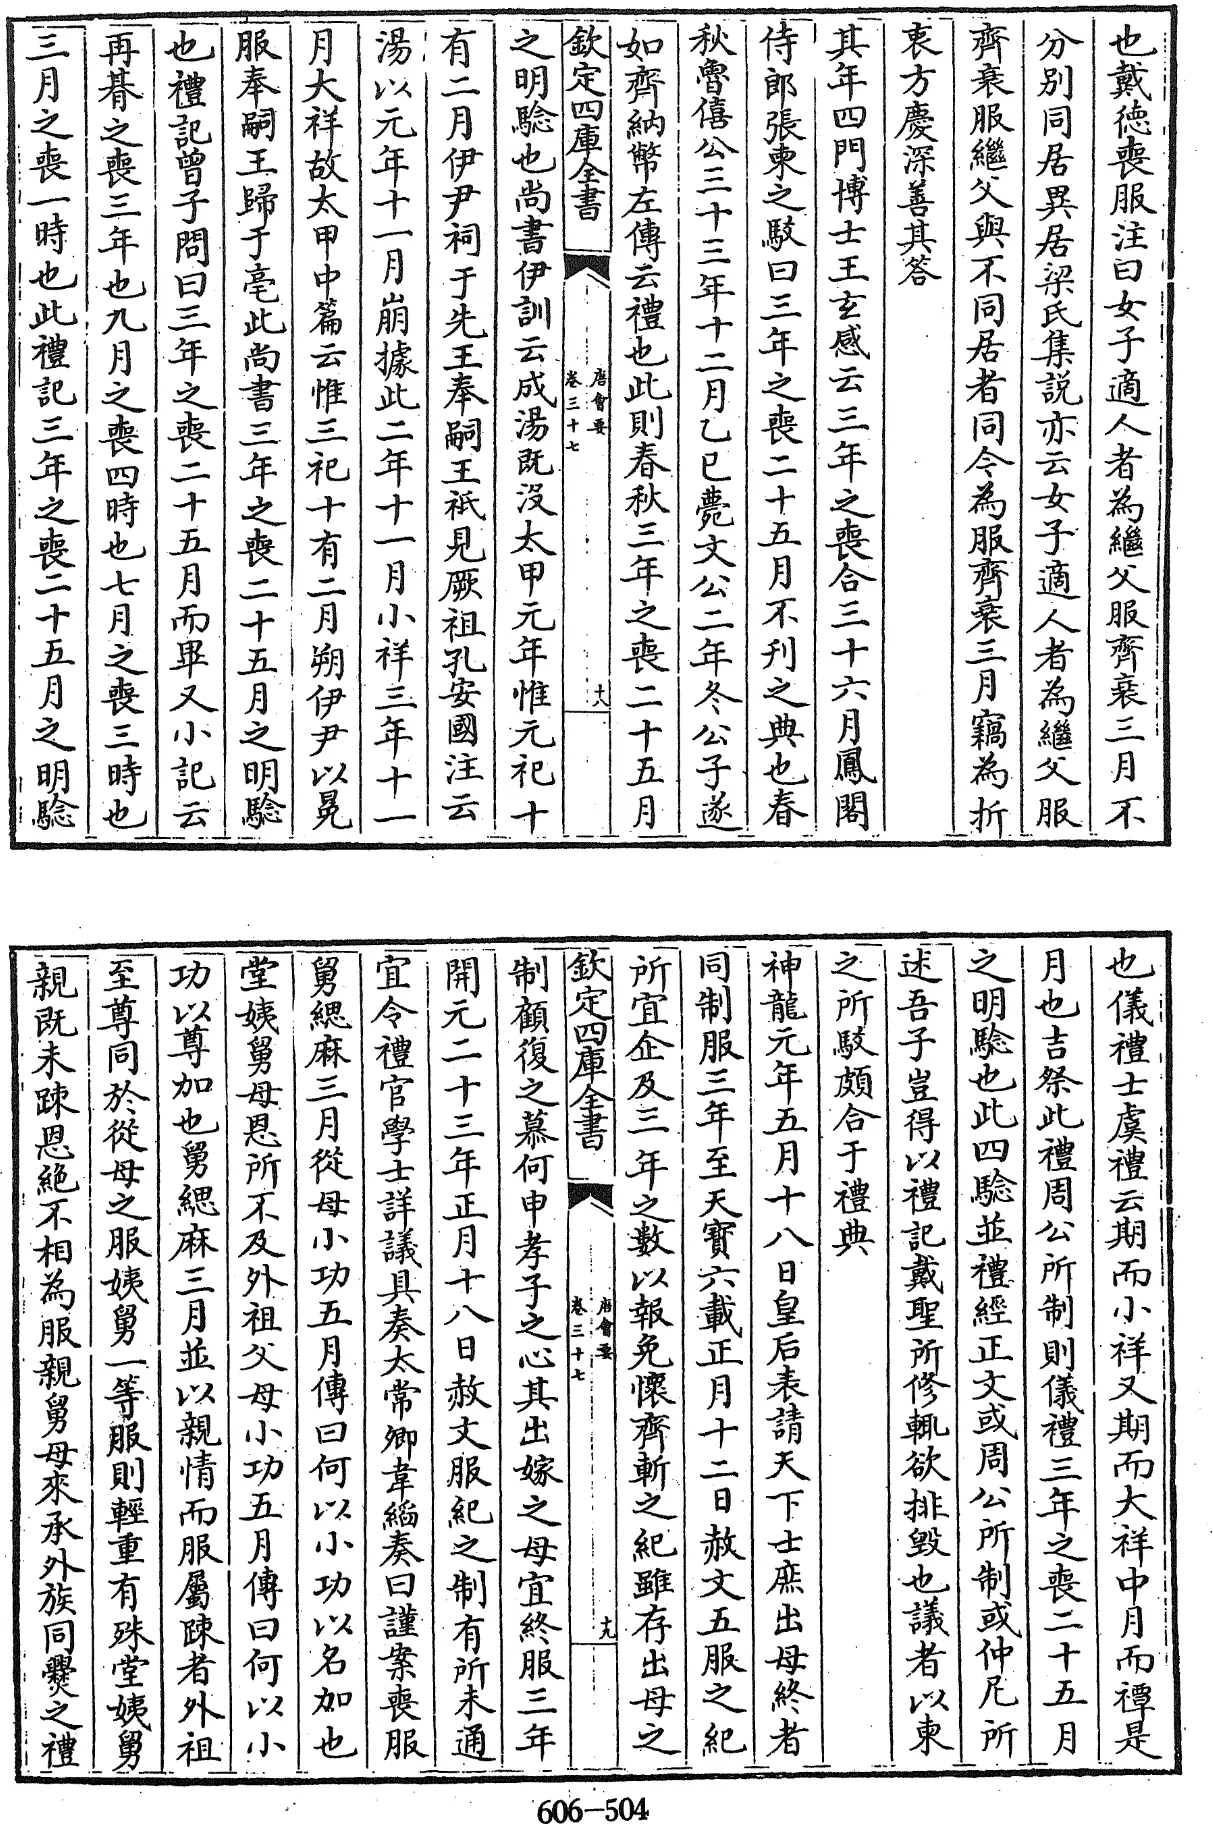 也戴徳喪服注曰女子適人者為繼父服齊衰三月不
分别同居異居梁氏集説亦云女子適人者為繼父服
齊衰服繼父與不同居者同今為服齊衰三月竊為折
衷方慶深善其答
其年四門博士王玄感云三年之喪合三十六月鳳閣
侍郎張柬之駮曰三年之喪二十五月不刋之典也春
秋魯僖公三十三年十二月乙巳薨文公二年冬公子遂
如齊納幣左傳云禮也此則春秋三年之喪二十五月
欽定四庫全書
唐會要
卷三十七
十八
之明驗也尚書伊訓云成湯既沒太甲元年惟元祀十
有二月伊尹祠于先王奉嗣王祗見厥祖孔安國注云
湯以元年十一月崩據此二年十一月小祥三年十一
月大祥故太甲中篇云惟三祀十有二月朔伊尹以冕
服奉嗣王歸于亳此尚書三年之喪二十五月之明驗
也禮記曾子問曰三年之喪二十五月而畢又小記云
再朞之喪三年也九月之喪四時也七月之喪三時也
三月之喪一時也此禮記三年之喪二十五月之明驗
也儀禮士虞禮云期而小祥又期而大祥中月而禫是
月也吉祭此禮周公所制則儀禮三年之喪二十五月
之明驗也此四驗並禮經正文或周公所制或仲尼所
述吾子豈得以禮記戴聖所修輒欲排毁也議者以柬
之所駮頗合于禮典
神龍元年五月十八日皇后表請天下士庶出母終者
同制服三年至天寳六載正月十二日赦文五服之紀
所宜企及三年之數以報免懷齊斬之紀雖存出母之
欽定四庫全書
唐會要
卷三十七
十九
制顧復之慕何申孝子之心其出嫁之母宜終服三年
開元二十三年正月十八日赦文服紀之制有所未通
宜令禮官學士詳議具奏太常卿韋縚奏曰謹案喪服
舅緦麻三月從母小功五月傳曰何以小功以名加也
堂姨舅母恩所不及外祖父母小功五月傳曰何以小
功以尊加也舅緦麻三月並以親情而服屬踈者外祖
至尊同於從母之服姨舅一等服則輕重有殊堂姨舅
親既未踈恩絶不相為服親舅母來承外族同爨之禮
606-504